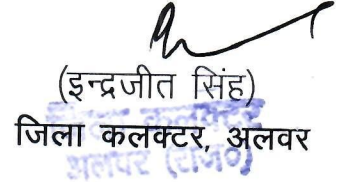 (इन्द्रजीत सिंह)
जिला कलक्टर, अलवर
जिला कलक्टर
अलवर (राज०)